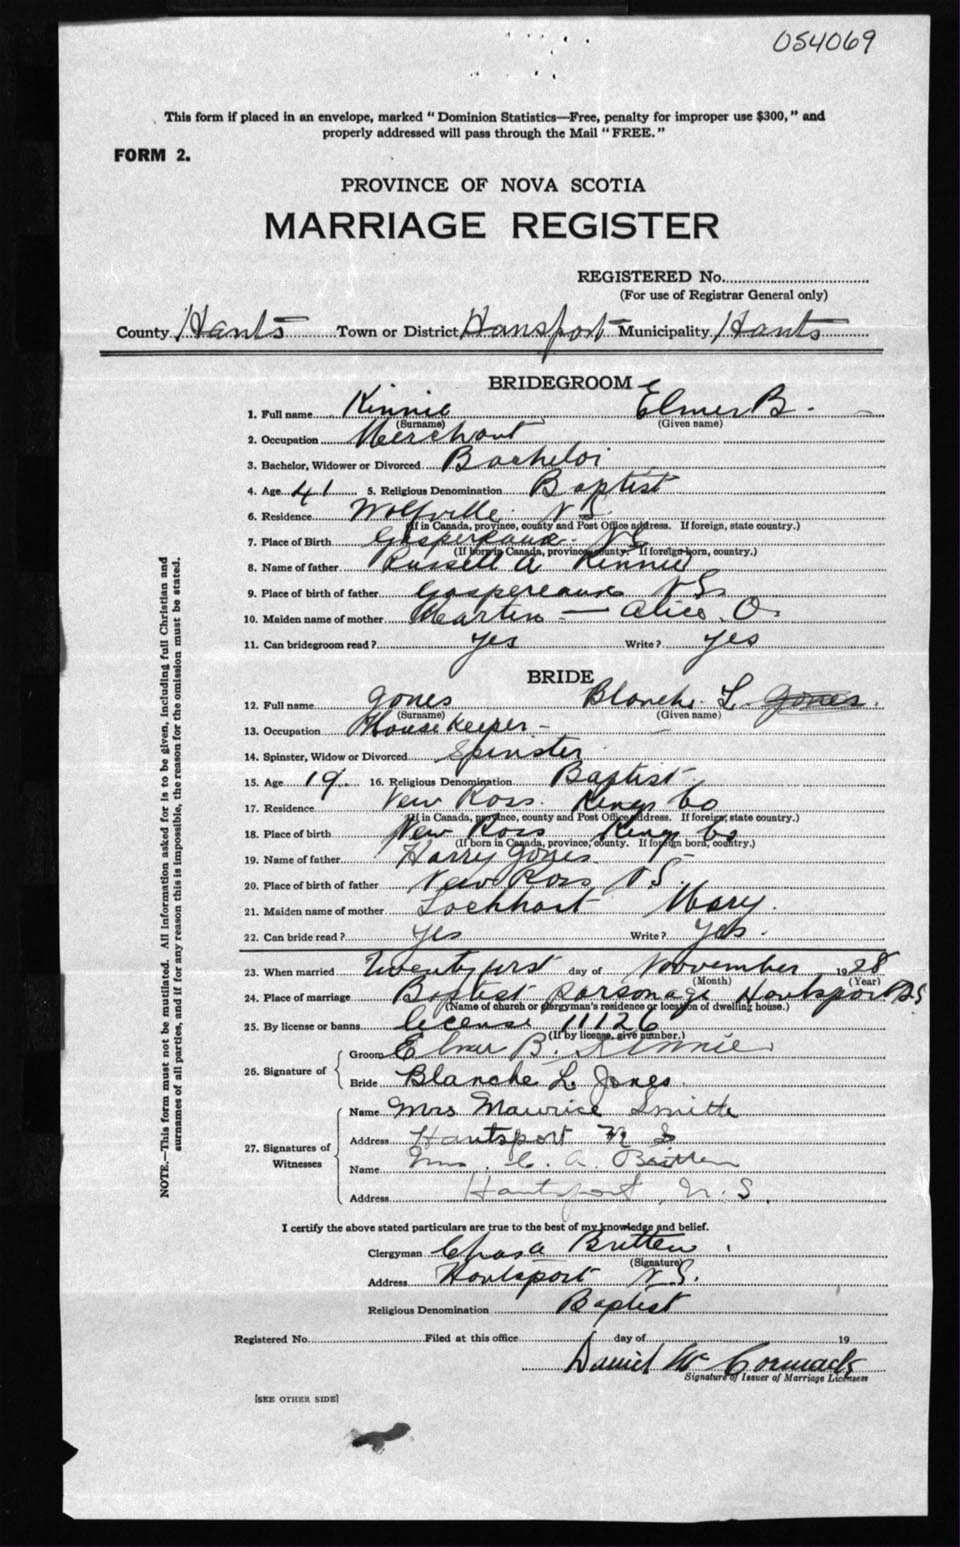 054069
This form if placed in an envelope, marked "Dominion Statistics—Free, penalty for improper use $300," and
properly addressed will pass through the Mail "FREE."
FORM 2.
PROVINCE OF NOVA SCOTIA
MARRIAGE REGISTER
REGISTERED No.
(For use of Registrar General only)
County Hants Town or District Hansport Municipality Hants
BRIDEGROOM
1. Full name Kinnie Elmer B.
(Surname) (Given name)
2. Occupation Merchant
3. Bachelor, Widower or Divorced Bachelor
4. Age 41 5. Religious Denomination Baptist
6. Residence Wolfville N S
(If in Canada, province, county and Post Office address. If foreign, state country.)
7. Place of Birth Gaspereaux N S
(If born in Canada, province, county. If foreign born, country.)
8. Name of father Russell A Kinnie
9. Place of birth of father Gaspereaux N S
10. Maiden name of mother Martin — Alice O.
11. Can bridegroom read? Yes Write? Yes
BRIDE
12. Full name Jones Blanche L. Jones.
(Surname) (Given name)
13. Occupation House Keeper -
14. Spinster, Widow or Divorced Spinster
15. Age 19 16. Religious Denomination Baptist
17. Residence New Ross. Kings Co
(If in Canada, province, county and Post Office address. If foreign, state country.)
18. Place of birth New Ross Kings Co
(If born in Canada, province, county. If foreign born, country.)
19. Name of father Harry Jones
20. Place of birth of father New Ross N S.
21. Maiden name of mother Lockhart Mary.
22. Can bride read? Yes Write? Yes.
23. When married Twenty first day of November 1928
(Month) (Year)
24. Place of marriage Baptist parsonage Hantsport NS
(Name of church or clergyman's residence or location of dwelling house.)
25. By license or banns license 11126
(If by license, give number.)
26. Signature of Groom Elmer B. Kinnie
Bride Blanche L. Jones.
27. Signatures of Witnesses Name Mrs Maurice Smith
Address Hantsport N S
Name Mrs. C. A. Britten
Address Hantsport, N. S.
I certify the above stated particulars are true to the best of my knowledge and belief.
Clergyman Chas A Britten
(Signature)
Address Hantsport N S.
Religious Denomination Baptist
Registered No. Filed at this office day of 19
Daniel Mc Cormack
Signature of Issuer of Marriage Licenses
[SEE OTHER SIDE]
NOTE.—This form must not be mutilated. All information asked for is to be given, including full Christian and
surnames of all parties, and if for any reason this is impossible, the reason for the omission must be stated.